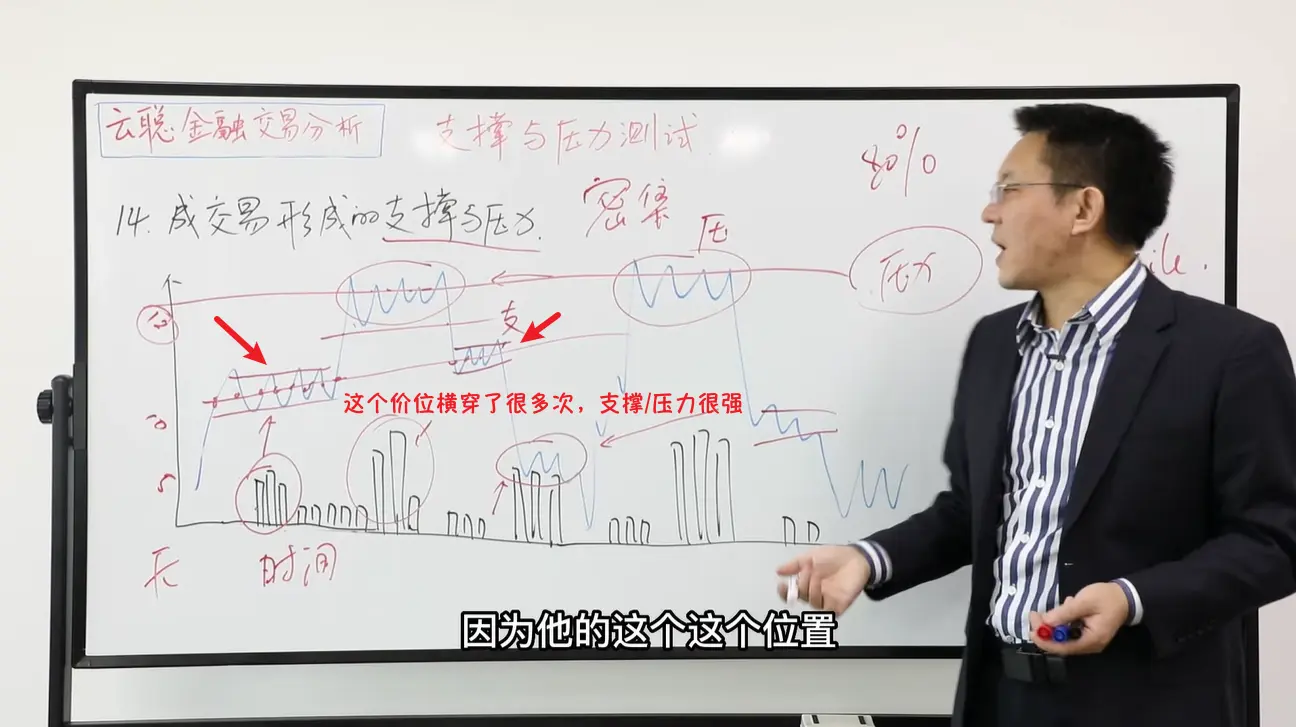 云聪金融交易分析
支撑与压力测试
80%
14. 成交易形成的支撑与压力.
密集
压
压力
支
这个价位横穿了很多次，支撑/压力很强
5
长 时间
因为他的这个这个位置